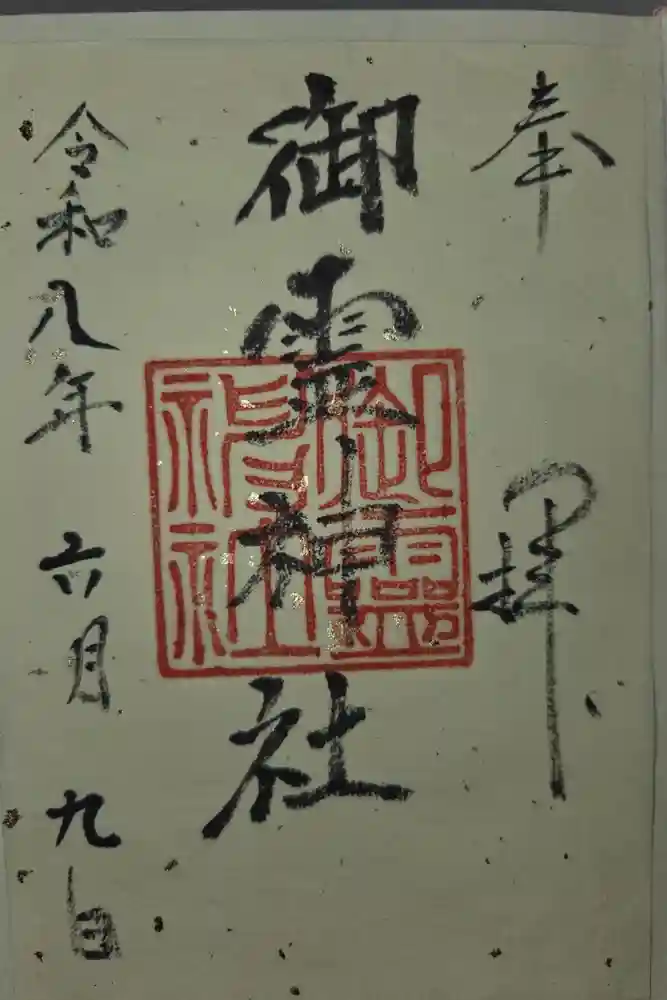 奉拝
御霊神社
御靈神社
令和八年六月九日